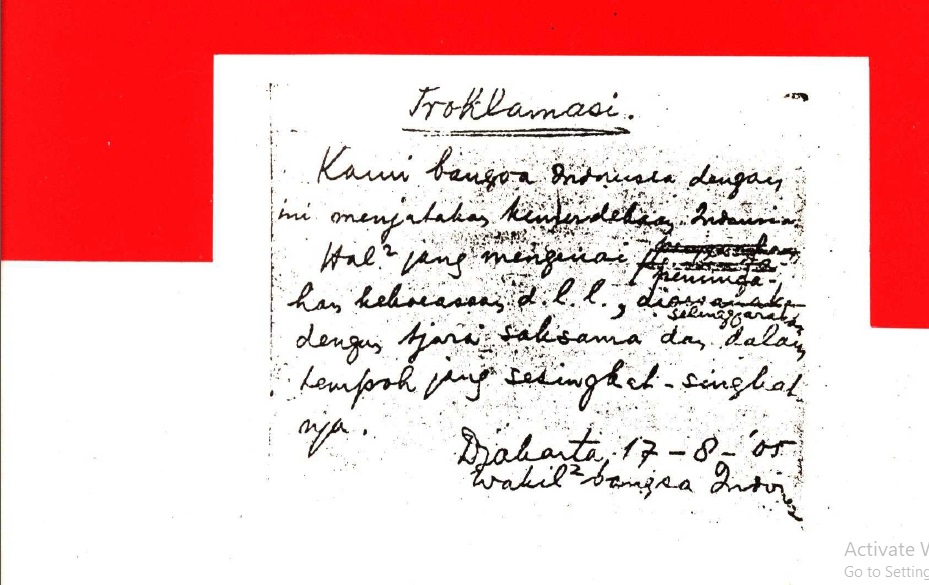 Proklamasi.
Kami bangsa Indonesia dengan
ini menjatakan kemerdekaan Indonesia.
Hal² jang mengenai
peminda-
han kekoeasaan d.l.l.,
selenggarakan
dengan tjara saksama dan dalam
tempoh jang sesingkat-singkat
nja.
Djakarta, 17 - 8 - '05
Wakil² bangsa Indonesia
Activate
Go to Setting